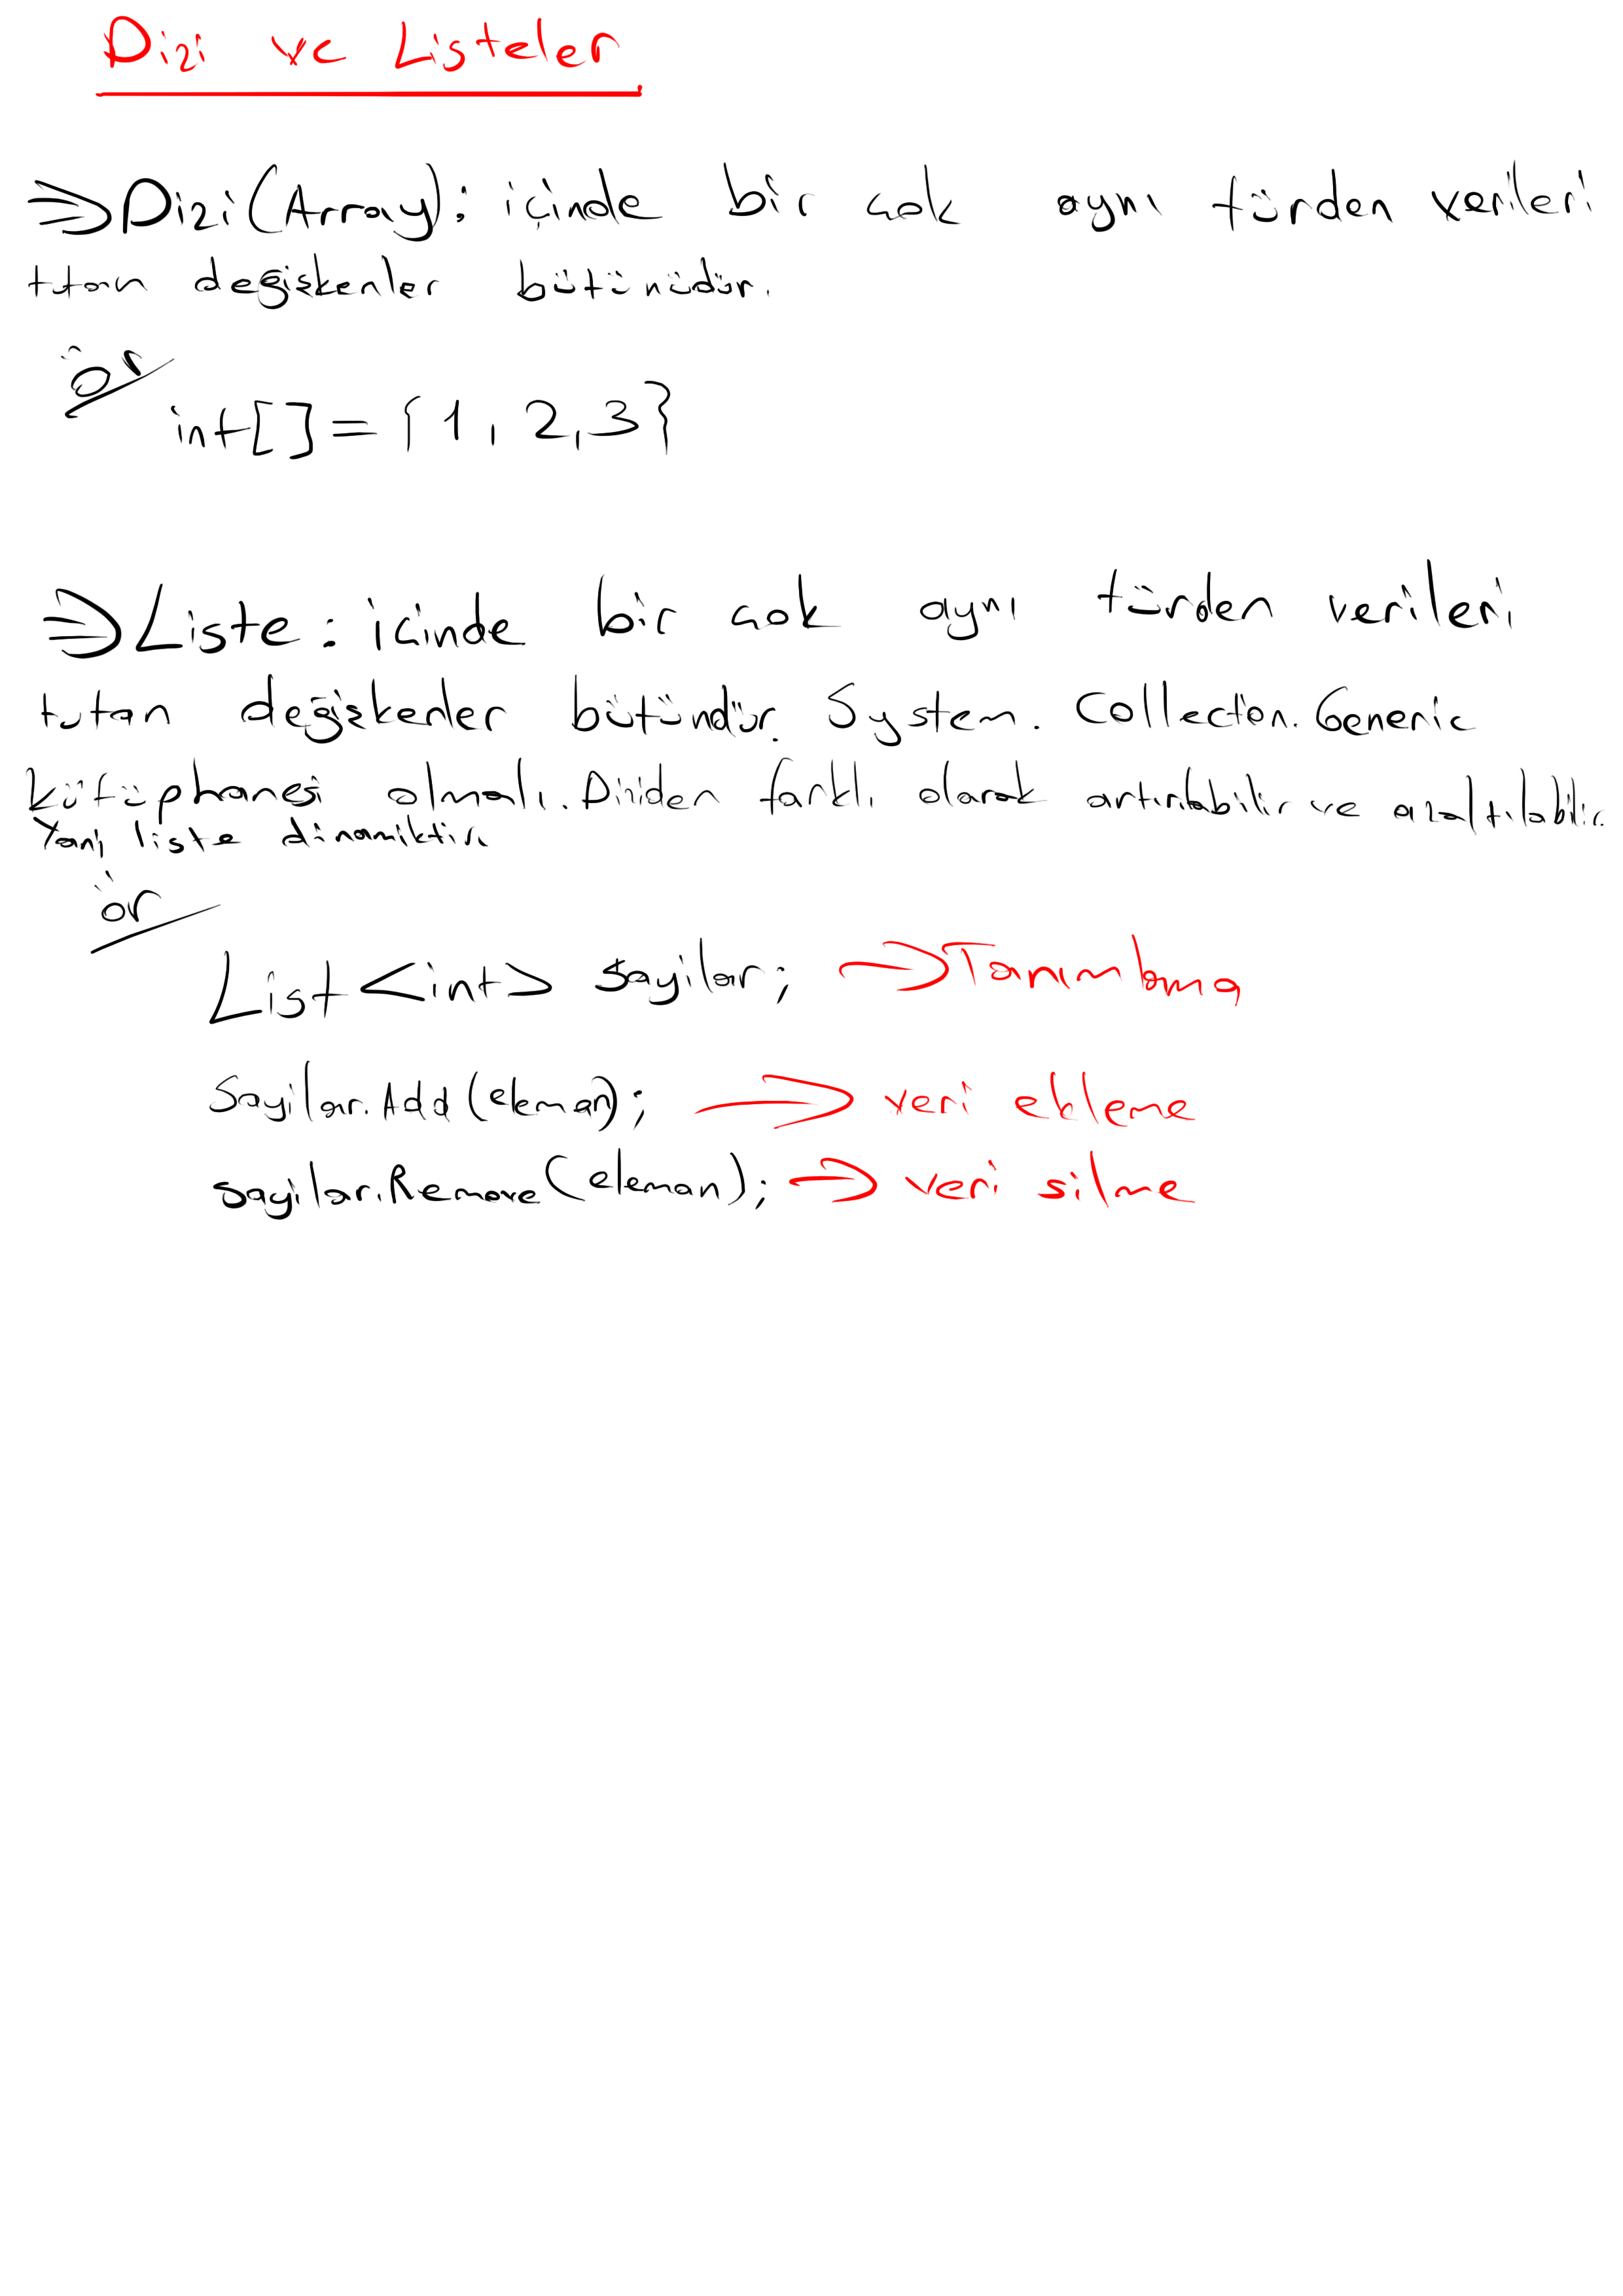 Dizi ve Listeler
⇒Dizi(Array): içinde bir çok aynı türden verileri
tutan değişkenler bütünüdür.
ör
int[]={1,2,3}
⇒Liste: içinde bir çok aynı türden verileri
tutan değişkenler bütündür. System. Collection. Generic
kütüphanesi olmalı. Diziden farklı olarak artırılabilir ve azaltılabilir.
Yani liste dinamiktir.
ör
List<int> sayilar; →Tanımlama
Sayilar.Add(eleman); → veri ekleme
sayilar.Remove(eleman); → veri silme